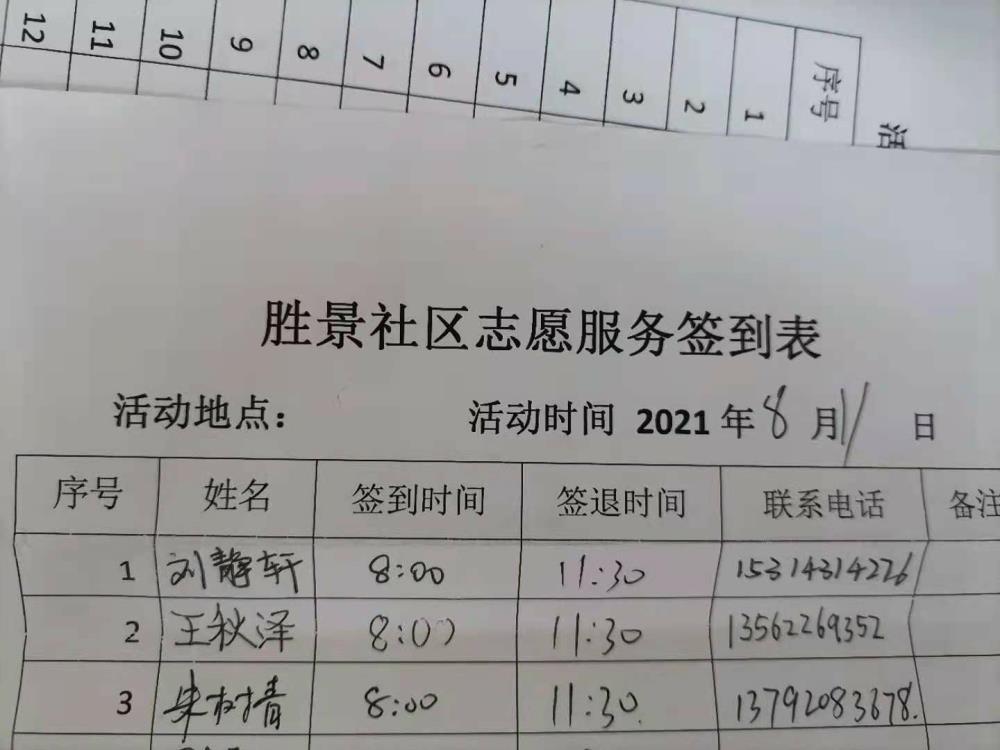 12 11 10 9 8 7 6 5 4 3 2 1 序号
活
胜景社区志愿服务签到表
活动地点： 活动时间 2021 年 8 月 11 日
序号 姓名 签到时间 签退时间 联系电话 备注
1 刘静轩 8:00 11:30 15314314226
2 王秋泽 8:00 11:30 13562269352
3 8:00 11:30 13792083678.